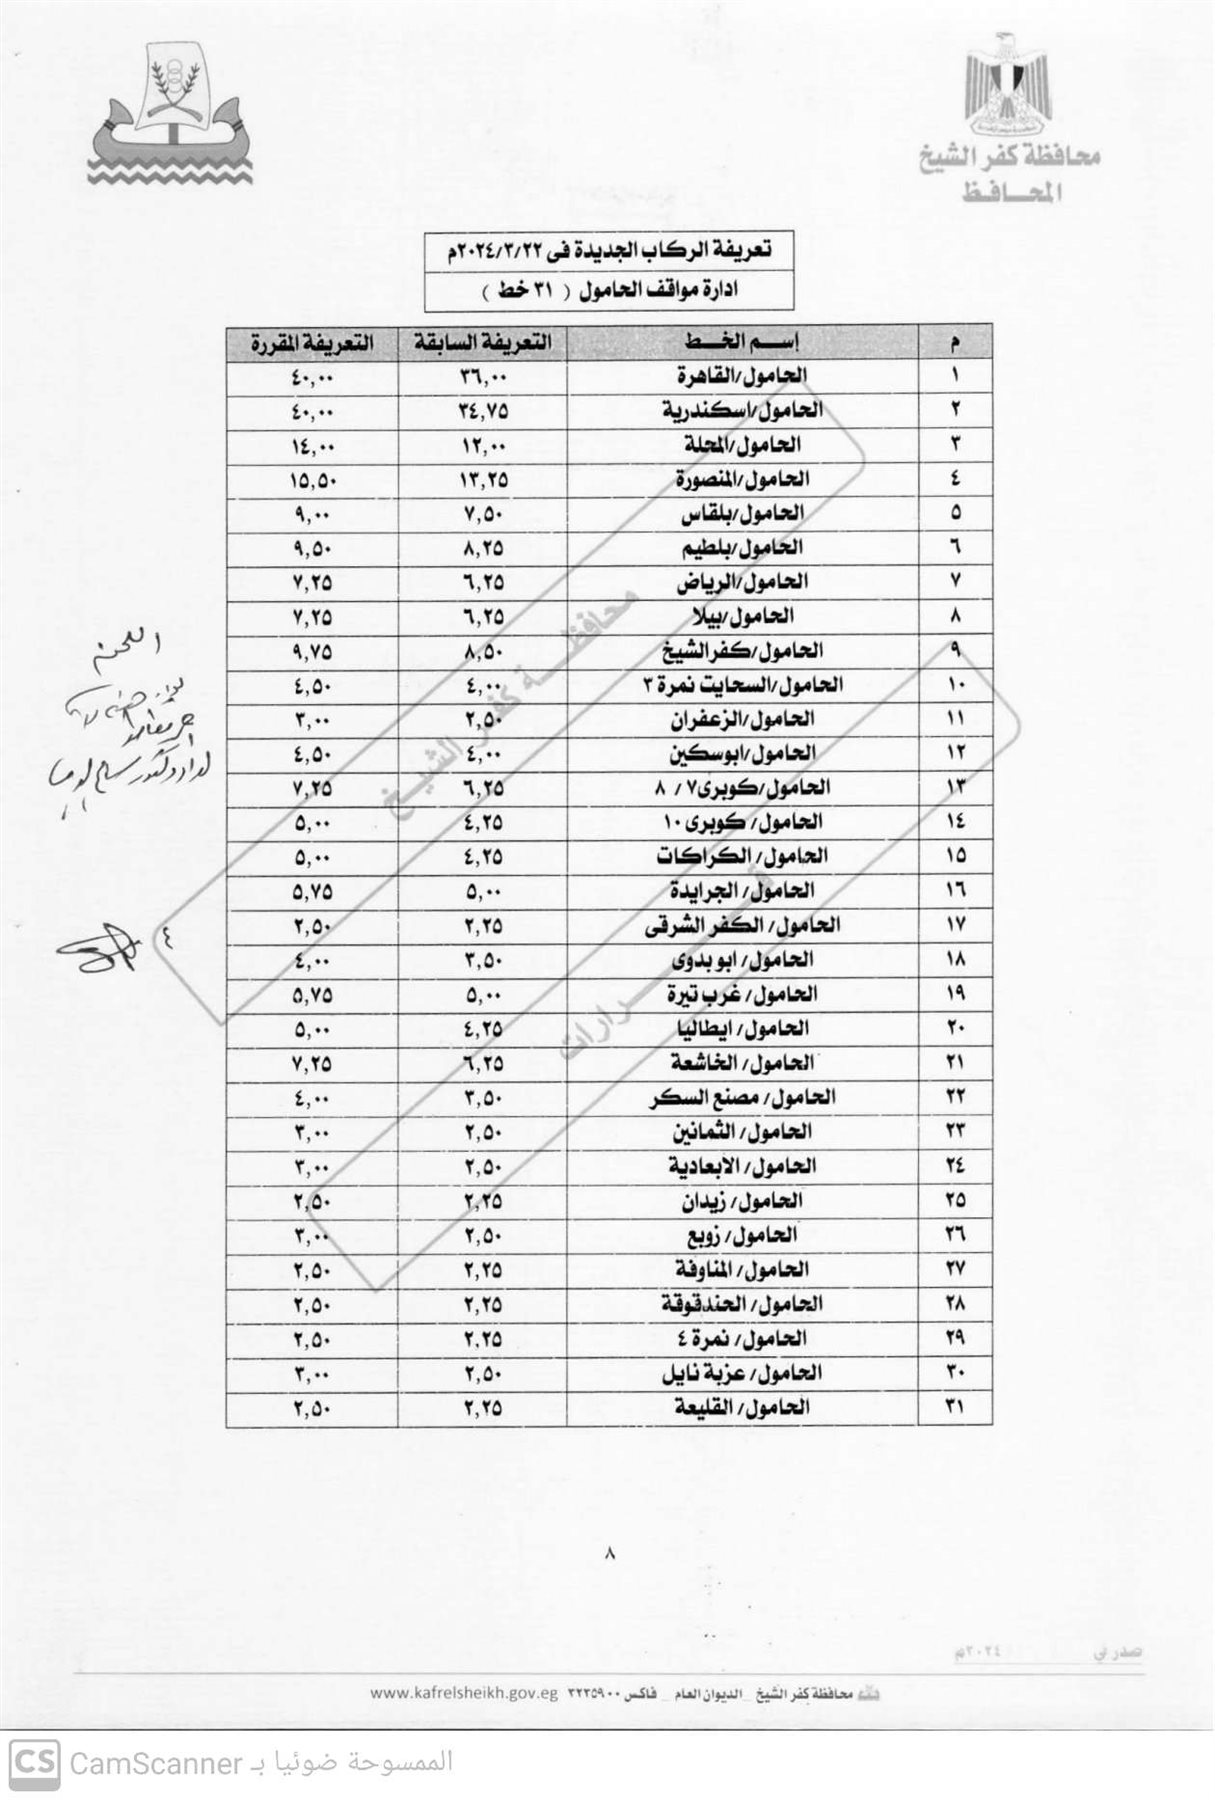 محافظة كفر الشيخ
المحافظ
تعريفة الركاب الجديدة فى ٢٠٢٤/٣/٢٢م
ادارة مواقف الحامول ( ٣١ خط )
م إسم الخط التعريفة السابقة التعريفة المقررة
١ الحامول/القاهرة ٣٦,٠٠ ٤٠,٠٠
٢ الحامول/اسكندرية ٣٤,٧٥ ٤٠,٠٠
٣ الحامول/المحلة ١٢,٠٠ ١٤,٠٠
٤ الحامول/المنصورة ١٣,٢٥ ١٥,٥٠
٥ الحامول/بلقاس ٧,٥٠ ٩,٠٠
٦ الحامول/بلطيم ٨,٢٥ ٩,٥٠
٧ الحامول/الرياض ٦,٢٥ ٧,٢٥
٨ الحامول/بيلا ٦,٢٥ ٧,٢٥
٩ الحامول/كفرالشيخ ٨,٥٠ ٩,٧٥
١٠ الحامول/السحايت نمرة ٣ ٤,٠٠ ٤,٥٠
١١ الحامول/الزعفران ٢,٥٠ ٣,٠٠
١٢ الحامول/ابوسكين ٤,٠٠ ٤,٥٠
١٣ الحامول/كوبرى٧ / ٨ ٦,٢٥ ٧,٢٥
١٤ الحامول/ كوبرى ١٠ ٤,٢٥ ٥,٠٠
١٥ الحامول/ الكراكات ٤,٢٥ ٥,٠٠
١٦ الحامول/ الجرايدة ٥,٠٠ ٥,٧٥
١٧ الحامول/ الكفر الشرقى ٢,٢٥ ٢,٥٠
١٨ الحامول/ ابو بدوى ٣,٥٠ ٤,٠٠
١٩ الحامول/ غرب تيرة ٥,٠٠ ٥,٧٥
٢٠ الحامول/ ايطاليا ٤,٢٥ ٥,٠٠
٢١ الحامول/ الخاشعة ٦,٢٥ ٧,٢٥
٢٢ الحامول/ مصنع السكر ٣,٥٠ ٤,٠٠
٢٣ الحامول/ الثمانين ٢,٥٠ ٣,٠٠
٢٤ الحامول/ الابعادية ٢,٥٠ ٣,٠٠
٢٥ الحامول/ زيدان ٢,٢٥ ٢,٥٠
٢٦ الحامول/ زوبع ٢,٥٠ ٣,٠٠
٢٧ الحامول/ المناوفة ٢,٢٥ ٢,٥٠
٢٨ الحامول/ الحندقوقة ٢,٢٥ ٢,٥٠
٢٩ الحامول/ نمرة ٤ ٢,٢٥ ٢,٥٠
٣٠ الحامول/ عزبة نايل ٢,٥٠ ٣,٠٠
٣١ الحامول/ القليعة ٢,٢٥ ٢,٥٠
محافظة كفر الشيخ
قرارات
اللجنة
٤
٨
صدر في ٢٠٢٤م
محافظة كفر الشيخ _ الديوان العام _ فاكس ٣٢٣٥٩٠٠ www.kafrelsheikh.gov.eg
CS الممسوحة ضوئيا بـ CamScanner